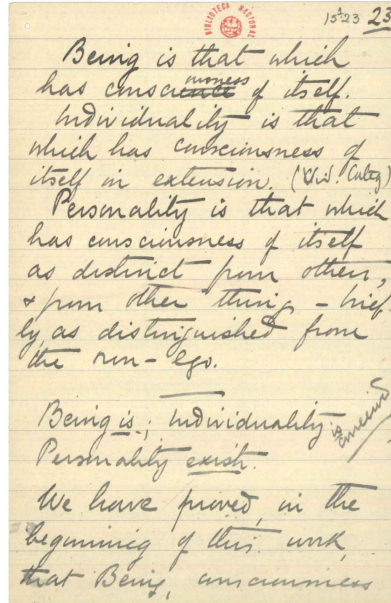 BIBLIOTECA NACIONAL
15³-23 23
Being is that which
has consciousness of itself.
Individuality is that
which has consciousness of
itself in extension. (
Personality is that which
has consciousness of itself
as distinct from others,
& from other things – brief-
ly, as distinguished from
the non-ego.
Being is; individuality is
Personality exist.
We have proved, in the
beginning of this work,
that Being, consciousness